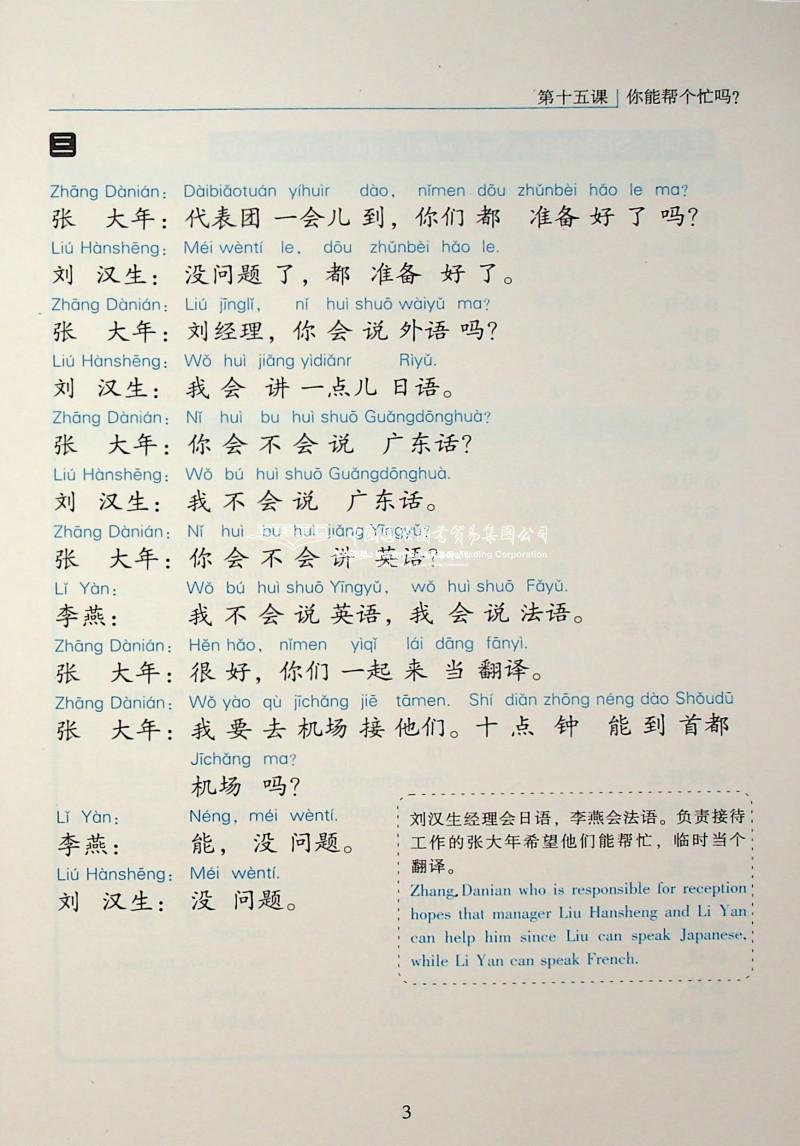 第十五课 | 你能帮个忙吗?
三
Zhāng Dànián: Dàibiǎotuán yíhuìr dào, nǐmen dōu zhǔnbèi hǎo le ma?
张 大年: 代表团 一会儿 到, 你们 都 准备 好 了 吗?
Liú Hànshēng: Méi wèntí le, dōu zhǔnbèi hǎo le.
刘 汉生: 没问题 了, 都 准备 好 了。
Zhāng Dànián: Liú jīnglǐ, nǐ huì shuō wàiyǔ ma?
张 大年: 刘经理, 你 会 说 外语 吗?
Liú Hànshēng: Wǒ huì jiǎng yìdiǎnr Rìyǔ.
刘 汉生: 我 会 讲 一点儿 日语。
Zhāng Dànián: Nǐ huì bu huì shuō Guǎngdōnghuà?
张 大年: 你 会 不 会 说 广东话?
Liú Hànshēng: Wǒ bú huì shuō Guǎngdōnghuà.
刘 汉生: 我 不 会 说 广东话。
Zhāng Dànián: Nǐ huì bu huì jiǎng Yīngyǔ?
张 大年: 你 会 不 会 讲 英语?
Lǐ Yàn: Wǒ bú huì shuō Yīngyǔ, wǒ huì shuō Fǎyǔ.
李燕: 我 不 会 说 英语, 我 会 说 法语。
Zhāng Dànián: Hěn hǎo, nǐmen yìqǐ lái dāng fānyì.
张 大年: 很 好, 你们 一起 来 当 翻译。
Zhāng Dànián: Wǒ yào qù jīchǎng jiē tāmen. Shí diǎn zhōng néng dào Shǒudū
张 大年: 我 要 去 机场 接 他们。十 点 钟 能 到 首都
Jīchǎng ma?
机场 吗?
Lǐ Yàn: Néng, méi wèntí.
李燕: 能, 没 问题。
Liú Hànshēng: Méi wèntí.
刘 汉生: 没 问题。
刘汉生经理会日语，李燕会法语。负责接待
工作的张大年希望他们能帮忙，临时当个
翻译。
Zhang Danian who is responsible for reception
hopes that manager Liu Hansheng and Li Yan
can help him since Liu can speak Japanese,
while Li Yan can speak French.
3